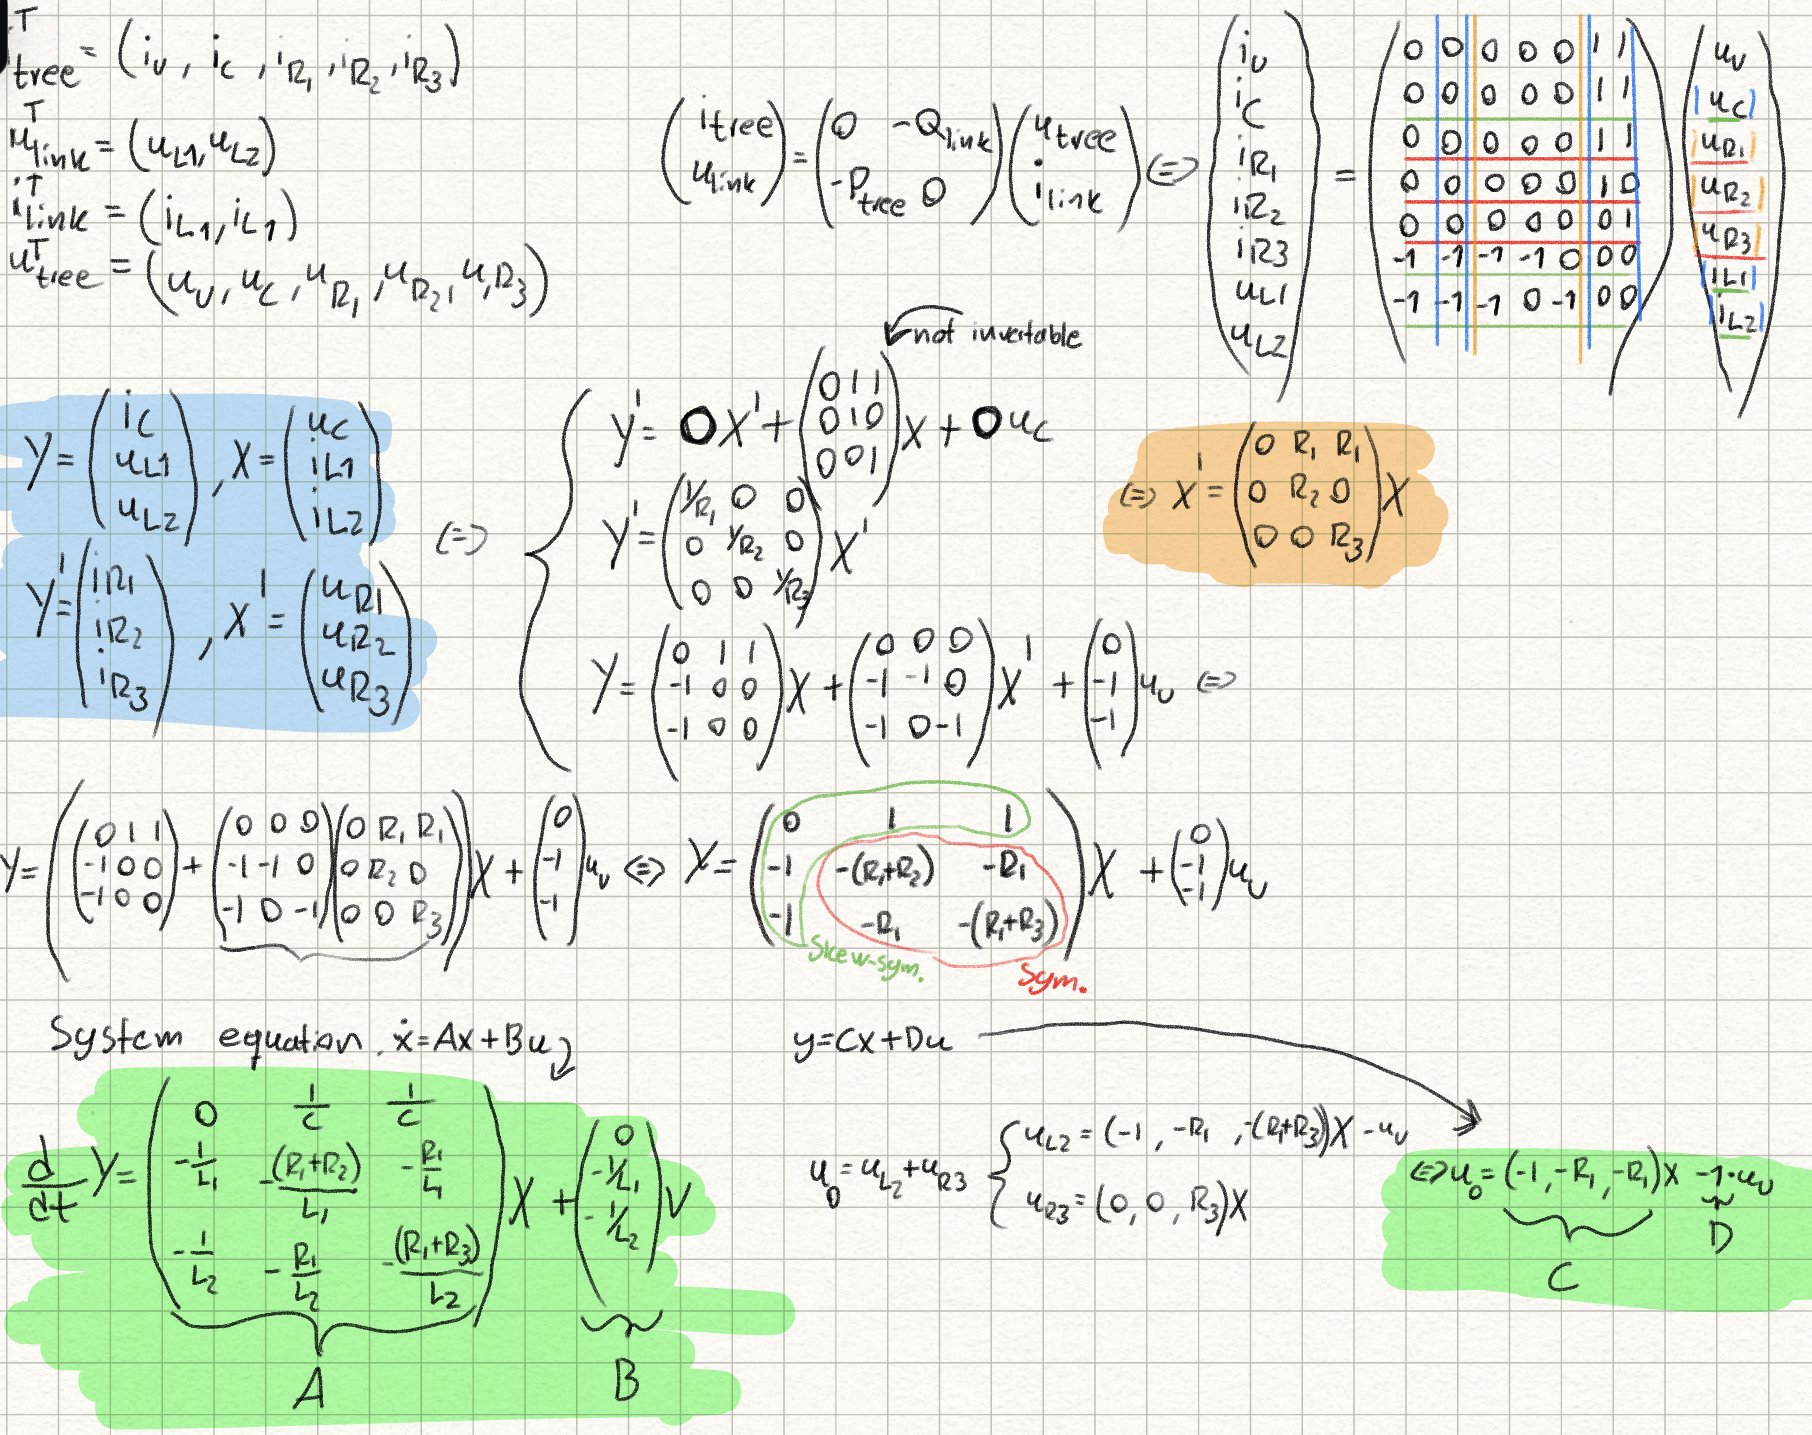 i^T_tree = (i_v, i_c, i_R1, i_R2, i_R3)
u^T_link = (u_L1, u_L2)
i^T_link = (i_L1, i_L1)
u^T_tree = (u_v, u_c, u_R1, u_R2, u_R3)
(i_tree; u_link) = (0 -Q_link; -P_tree 0)(u_tree; i_link) <=>
(i_v; i_c; i_R1; i_R2; i_R3; u_L1; u_L2) =
0 0 0 0 0 1 1
0 0 0 0 0 1 1
0 0 0 0 0 1 1
0 0 0 0 0 1 0
0 0 0 0 0 0 1
-1 -1 -1 -1 0 0 0
-1 -1 -1 0 -1 0 0
(u_v; u_c; u_R1; u_R2; u_R3; i_L1; i_L2)
not invertable
Y = (i_c; u_L1; u_L2), X = (u_c; i_L1; i_L2)
Y' = (i_R1; i_R2; i_R3), X' = (u_R1; u_R2; u_R3)
<=>
Y' = 0X' + (0 1 1; 0 1 0; 0 0 1)X + 0u_c
Y' = (1/R1 0 0; 0 1/R2 0; 0 0 1/R3)X'
<=> X' = (0 R1 R1; 0 R2 0; 0 0 R3)X
Y = (0 1 1; -1 0 0; -1 0 0)X + (0 0 0; -1 -1 0; -1 0 -1)X' + (0; -1; -1)u_v <=>
Y = ((0 1 1; -1 0 0; -1 0 0) + (0 0 0; -1 -1 0; -1 0 -1)(0 R1 R1; 0 R2 0; 0 0 R3))X + (0; -1; -1)u_v <=> Y = (0 1 1; -1 -(R1+R2) -R1; -1 -R1 -(R1+R3))X + (0; -1; -1)u_v
Skew-sym.
Sym.
System equation. ẋ=Ax+Bu
y=Cx+Du
d/dt Y = (0 1/C 1/C; -1/L1 -(R1+R2)/L1 -R1/L1; -1/L2 -R1/L2 -(R1+R3)/L2)X + (0; -1/L1; -1/L2)V
A
B
u_0 = u_L2 + u_R3
u_L2 = (-1, -R1, -(R1+R3))X - u_v
u_R3 = (0, 0, R3)X
<=> u_0 = (-1, -R1, -R1)X -1·u_v
C
D